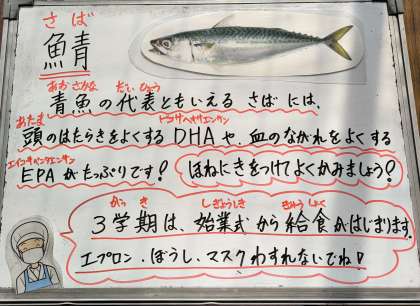 さば
魚鯖
あおざかな だいひょう
青魚の代表ともいえる さばには、
あたま ドコサヘキサエンサン
頭のはたらきをよくするDHAや、血のながれをよくする
エイコサペンタエンサン
EPAがたっぷりです! ほねにきをつけてよくかみましょう?
がっき しぎょうしき きゅうしょく
3学期は、始業式から給食がはじまります。
エプロン、ぼうし、マスクわすれないでね!